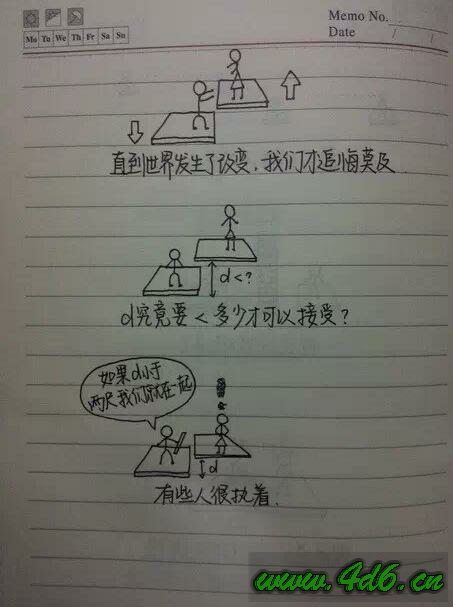 Memo No.
Date / /
Mo Tu We Th Fr Sa Su
直到世界发生了改变，我们才追悔莫及
d<?
d究竟要<多少才可以接受？
如果d小于
两尺我们就在一起
d
有些人很执着.
www.4d6.cn